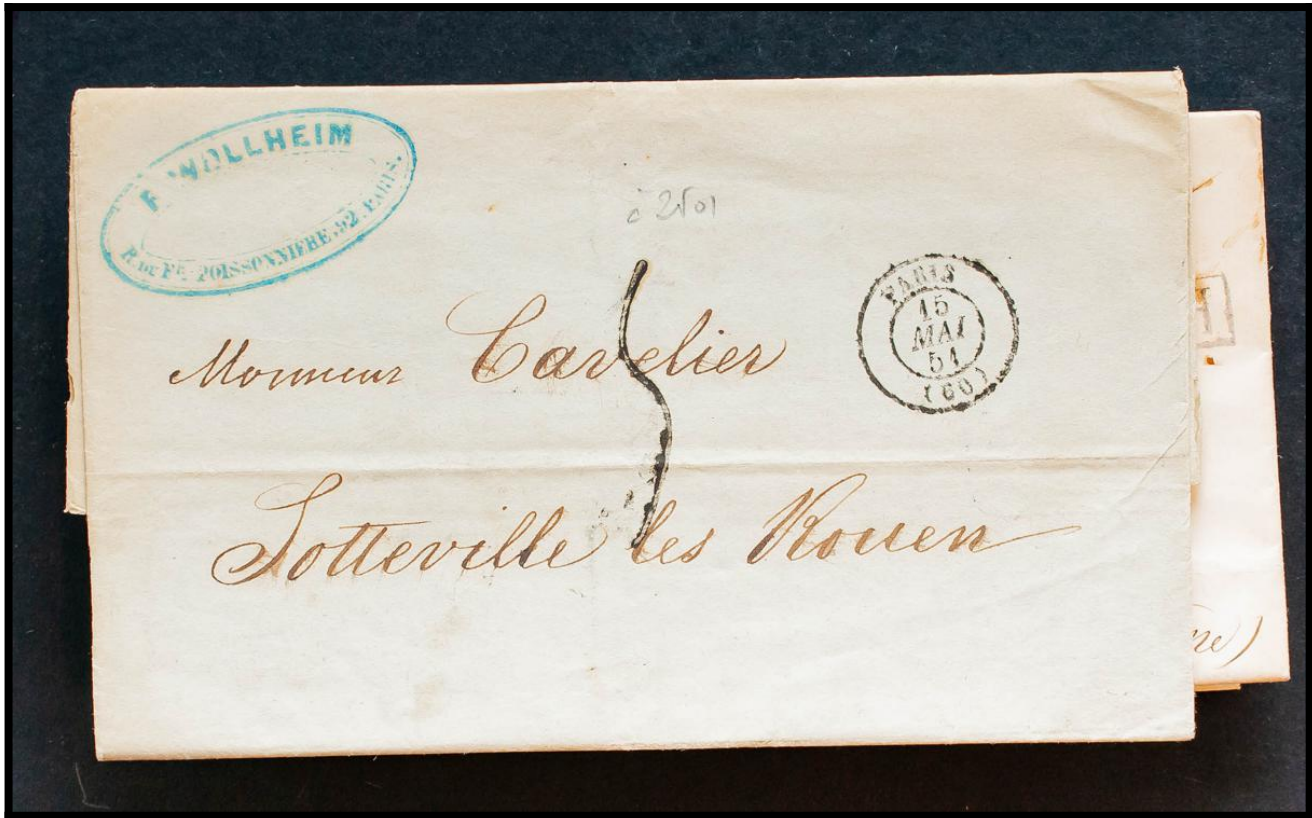 WOLLHEIM
R. DU Fg. POISSONNIERE. 52. PARIS.
PARIS
15
MAI
51
(60)
Monsieur Cavelier
Sotteville les Rouen